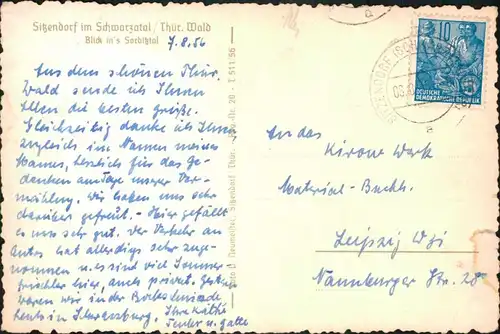 Sitzendorf im Schwarzatal / Thür. Wald
Blick in's Sorbitztal
7.8.56
Aus dem schönen Thür.
Wald sende ich Ihnen
Allen die besten Grüße.
Gleichzeitig danke ich Ihnen
zugleich im Namen meines
Mannes, herzlich für das Ge-
denken am Tage unserer Ver-
mählung. Wir haben uns sehr
darüber gefreut. - Hier gefällt
es uns sehr gut. Der Verkehr an
Autos hat allerdings sehr zuge-
nommen u. es sind viel Sommer-
frischler hier, auch privat. Gestern
waren wir in der
heute in Schwarzburg. Ihre Käthe
u. Gatte
Neumeister, Sitzendorf, Thür.
20 - I 511 56
SITZENDORF (SCH
10
DEUTSCHE
DEMOKRATISCHE REPUBLIK
An das
Kirow Werk
Material-Buchh.
Leipzig W31
Naumburger Str. 28